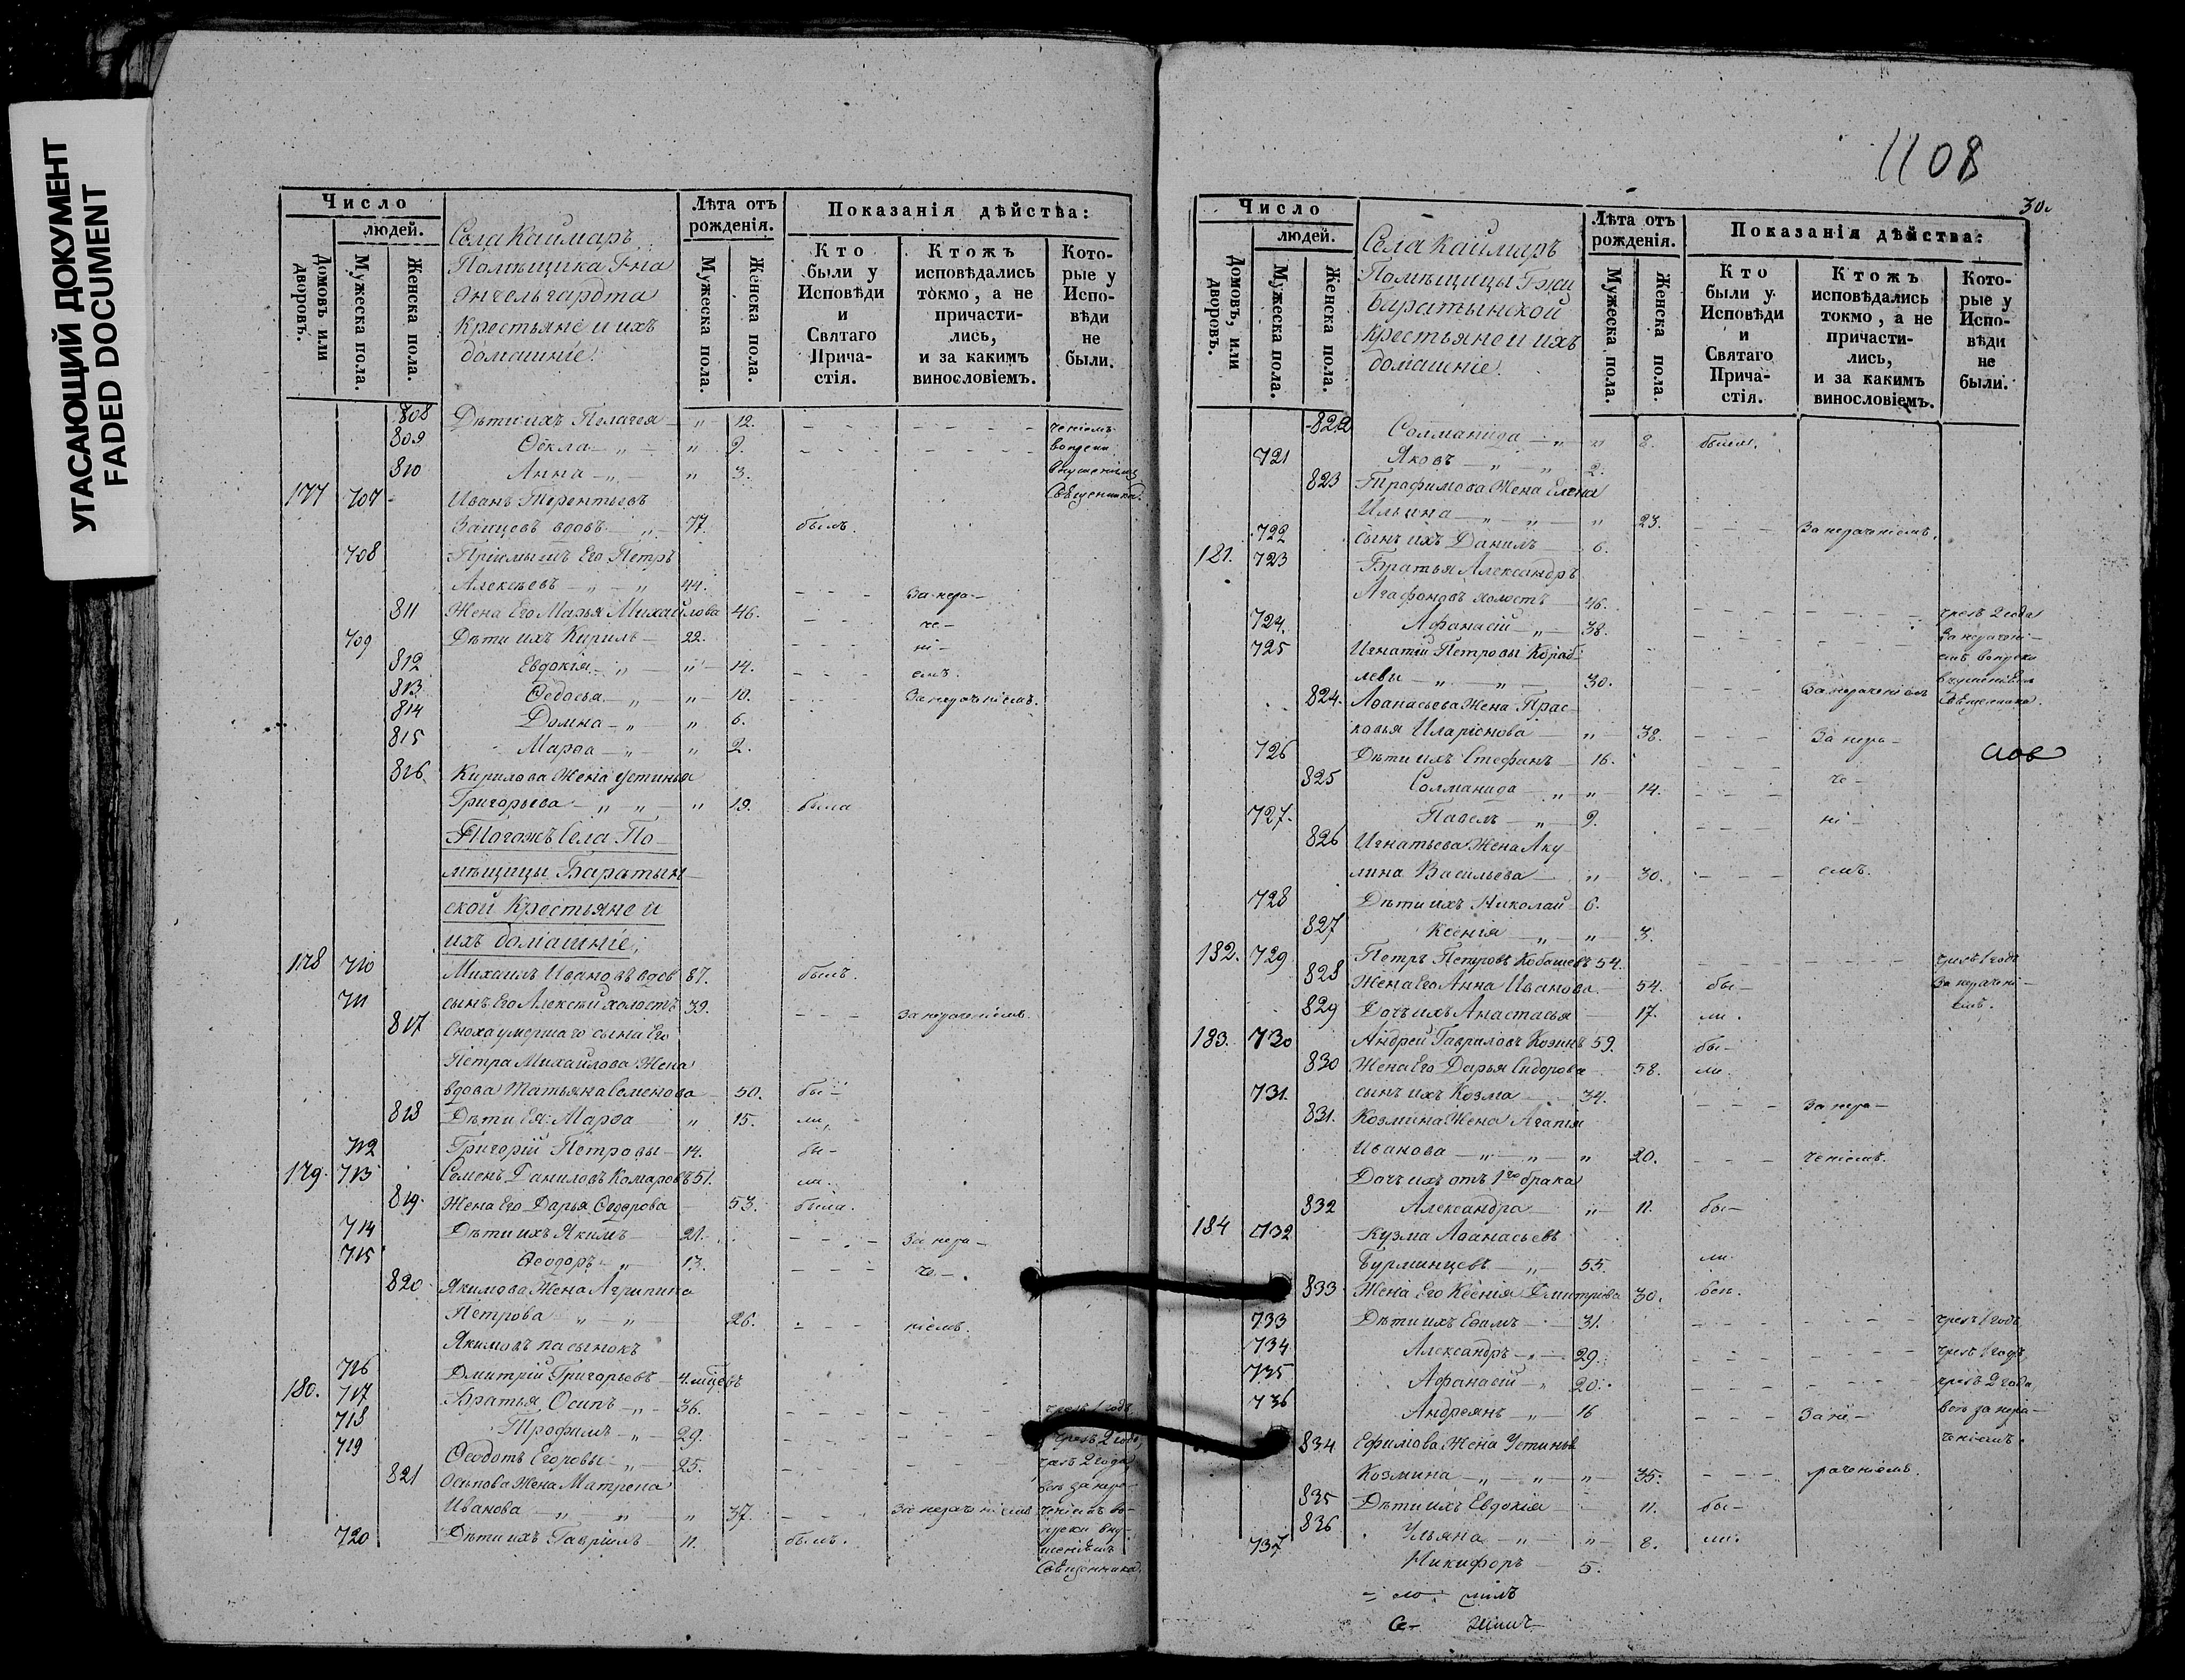 УГАСАЮЩИЙ ДОКУМЕНТ
FADED DOCUMENT
Число
людей.
Домовъ или дворовъ.
Мужеска пола.
Женска пола.
Села Каймаръ
Помѣщика Г-на
Энгельгардта
Крестьяне и ихъ
домашніе.
Лѣта отъ рожденія.
Мужеска пола.
Женска пола.
Показанія дѣйства:
Кто были у Исповѣди и Святаго Прича-стія.
Ктожъ исповѣдались токмо, а не причасти-лись, и за какимъ винословіемъ.
Кото-рые у Испо-вѣди не были.
808 Дѣти ихъ Пелагея — „ — 12. — — — — — — ченіемъ
809 Ѳекла — „ — „ 9. — — — — — —
810 Анна — „ — „ 3. внушенія
177 707 Иванъ Терентьевъ Священника.
Зайцевъ вдовъ — „ — 77. былъ.
708 Пріемышъ Его Петръ
Алексѣевъ — „ — „ 44. — — — За нера-
811 Жена Его Марья Михайлова 46. — — — че-
709 Дѣти ихъ Кирилъ — 22. — — — ні-
812 Евдокія — „ — „ — 14. — — — емъ.
813 Ѳедосья — „ — „ — 10. — — — За нераченіемъ.
814 Домна — „ — „ 6.
815 Марѳа — „ — „ 2.
816 Кирилова Жена Устинья
Григорьева — „ — „ — „ 19. была
Тогожъ Села По-
мѣщицы Баратын-
ской Крестьяне и
ихъ домашніе.
178 710 Михаилъ Ивановъ вдов 87. былъ.
711 сынъ Его Алексѣй холостъ 39. — — — За нераченіемъ.
817 Сноха умершаго сына Его
Петра Михайлова Жена
вдова Татьяна Семенова 50. бы-
818 Дѣти Ея: Марѳа — „ 15. ли,
712 Григорій Петровы — 14. бы-
179. 713 Семенъ Даниловъ Комаровъ 51. ли.
819. Жена Его Дарья Ѳедорова — 53. была.
714 Дѣти ихъ Якимъ — 21. — — — За нера-
715 Ѳеодоръ — „ — 13. — — — че-
820 Якимова Жена Агрипина
Петрова „ — „ — 26. — — — ніемъ.
Якимовъ пасынокъ
716 Дмитрій Григорьевъ — 4. мцевъ
180. 717 Братья Осипъ — „ — 36. — — — — — — чрезъ 1 годъ
718 Трофимъ — „ — 29. — — — — — — чрезъ 2 года
719 Ѳеодотъ Егоровы — „ — 25. — — — — — — чрезъ 2 года
821 Осипова Жена Матрена всѣ за нера-
Иванова — „ — „ — „ 37. — — — За нераченіемъ ченіемъ во-
720 Дѣти ихъ Гаврилъ — 11. былъ. преки вну-
шеніямъ
Священника.
1108
30.
Число
людей.
Домовъ, или дворовъ.
Мужеска пола.
Женска пола.
Села Каймаръ
Помѣщицы Г-жи
Баратынской
Крестьяне и ихъ
домашніе.
Лѣта отъ рожденія.
Мужеска пола.
Женска пола.
Показанія дѣйства:
Кто были у Исповѣди и Святаго Прича-стія.
Ктожъ исповѣдались токмо, а не причасти-лись, и за какимъ винословіемъ.
Кото-рые у Испо-вѣди не были.
822 Соломанида — „ „ 8. были.
721 Яковъ — „ — „ 2.
823 Трофимова Жена Елена
Ильина — „ — „ — „ 23. — — — За нераченіемъ.
722 сынъ ихъ Данилъ — 6.
181. 723 Братья Александръ
Агафоновъ холостъ — 46. — — — — — — чрезъ 2 года
724. Афанасій — „ — 38. — — — — — — За нерачені-
725 Игнатій Петровы Кораб- емъ вопреки
левы — „ — „ — 30. внушеніямъ
824. Аѳанасьева Жена Прас- За нераченіемъ Священника.
ковья Иларіонова — „ — 38. — — — За нера-
726 Дѣти ихъ Стефанъ — 16. — — —
825 Соломанида — „ — „ — 14. — — — че-
727. Павелъ — „ — 9. — — — ні-
826 Игнатьева Жена Аку-
лина Васильева — „ — 30. — — — емъ.
728 Дѣти ихъ Николай 6.
827 Ксенія — „ — „ — 3.
182. 729 Петръ Петровъ Кобашевъ 54. — — — — — — чрезъ 1 годъ
828 Жена Его Анна Иванова. — 54. бы- За нерачені-
829 Дочь ихъ Анастасья — 17. ли. емъ.
183. 730 Андрей Гавриловъ Козинъ 59. бы-
830 Жена Его Дарья Сидорова — 58. ли.
731. сынъ ихъ Козма — 34. — — — За нера-
831. Козмина Жена Агапія
Иванова — „ — „ — „ 20. — — — ченіемъ.
Дочь ихъ отъ 1го брака
832 Александра — „ — 11. бы-
184 732 Кузма Аѳанасьевъ
Бурминцевъ — „ — 55. ли.
833 Жена Его Ксенія Дмитріева 30.
733 Дѣти ихъ Ефимъ — 31. — — — — — — чрезъ 1 годъ
734 Александръ — „ — 29. — — — — — — чрезъ 1 годъ
735 Афанасій — „ 20. — — — — — — чрезъ 2 года
736 Андреянъ — „ — 16 — — — За не- всѣ за нера-
834 Ефимова Жена Устинья ченіемъ.
Козмина — „ — „ — „ 35. — — — раченіемъ.
835 Дѣти ихъ Евдокія — 11. бы-
836 Ульяна — „ — „ — 8. ли.
737 Никифоръ — 5.